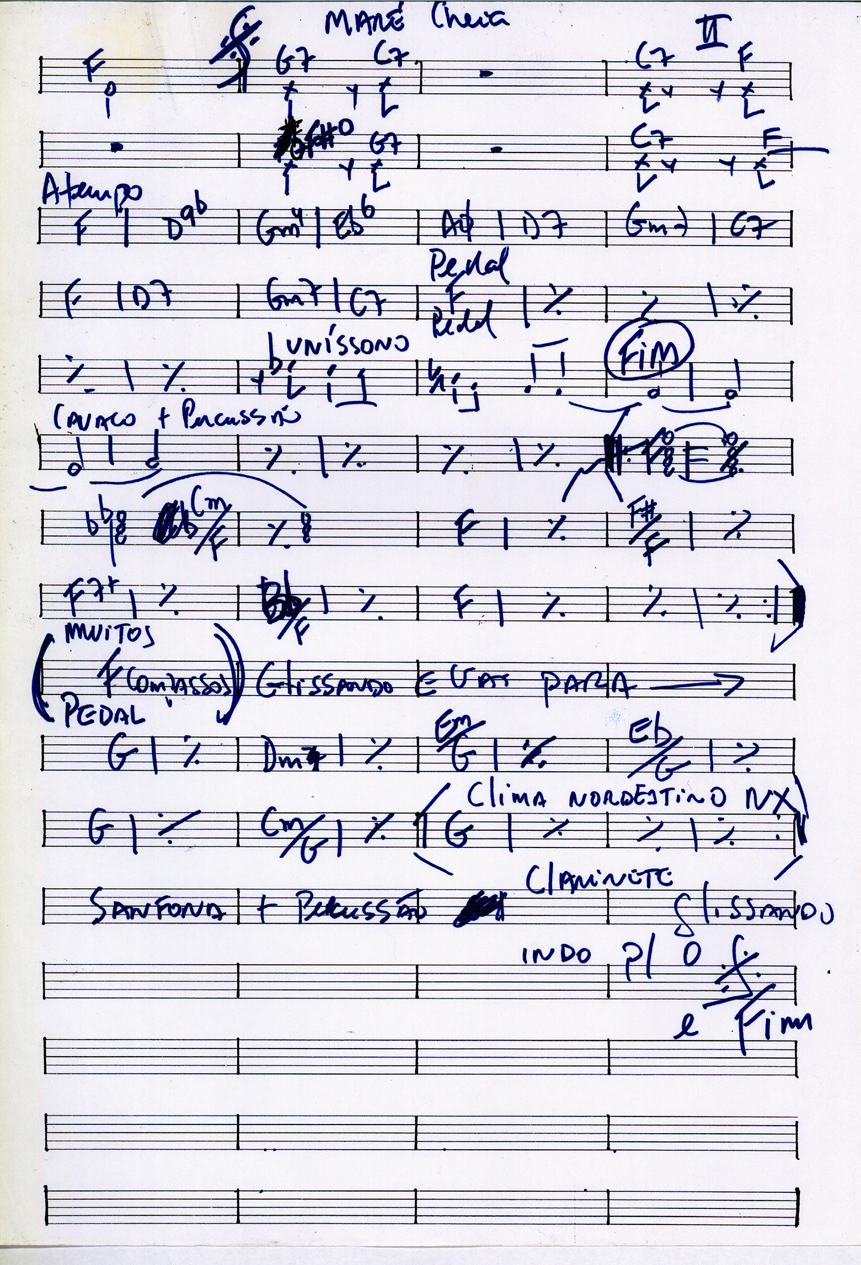 MARÉ Cheia
II
F G7 C7 C7 F
F#0 G7 C7 F
Atempo
F | D9b Gm4 | Eb6 Aø | D7 Gm7 | C7
Pedal
F | D7 Gm7 | C7 F | ٪ ٪ | ٪
Pedal
UNÍSSONO
FIM
CAVACO + Percussão
Cm/F F | ٪ F#/F | ٪
F7+ | ٪ Bb/F | ٪ F | ٪ ٪ | ٪
MUITOS
F COMPASSOS GLISSANDO E VAI PARA →
PEDAL
G | ٪ Dm7 | ٪ Em/G | ٪ Eb/G | ٪
Clima NORDESTINO NX
G | ٪ Cm/G | ٪ G | ٪ ٪ | ٪
CLARINETE
SANFONA + Percussão GLISSANDO
INDO p/ O
e Fim